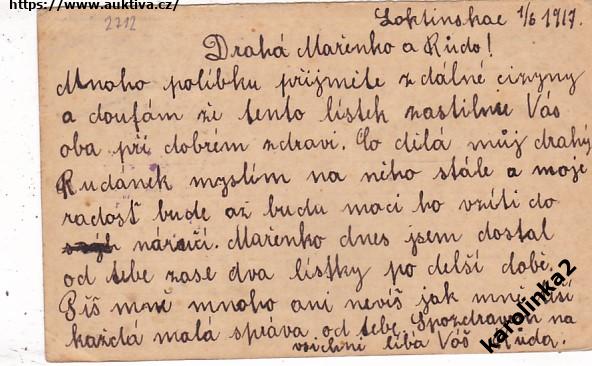 https://www.auktiva.cz/
2712
Loktinskae 1/6 1917.
Drahá Mařenko a Růdo!
Mnoho polibku přijmite z dálné cizyny
a doufám že tento lístek zastihne Vás
oba při dobrém zdravi. Co dilá můj drahý
Rudánek myslím na něho stále a moje
radosť bude až budu moci ho vzíti do
náručí. Mařenko dnes jsem dostal
od tebe zase dva lístky po delší době.
Piš mně mnoho ani nevíš jak mně těší
každá malá správa od tebe. Spozdravem na
všichni libá Váš Růda.
karolinka2